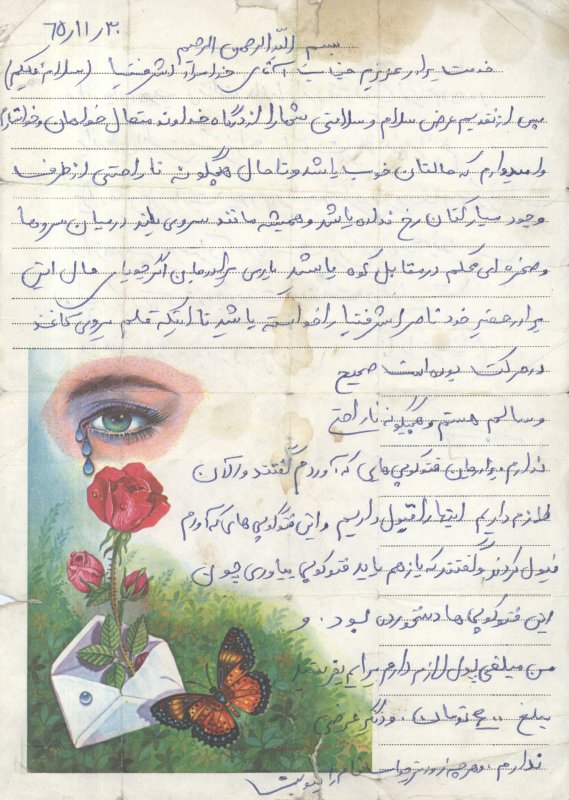 ۶۵/۱۱/۳۰
بسم الله الرحمن الرحیم
خدمت برادر عزیزم جناب آقای اشرف‌نیا (سلام علیکم)
پس از تقدیم عرض سلام و سلامتی شما را از درگاه خداوند متعال خواهان و خواستارم
و امیدوارم که حالتان خوب باشد و تا حال هیچگونه ناراحتی از طرف
وجود مبارکتان رخ نداده باشد و همیشه مانند سروی بلند در میان سروها
و صخره ای محکم در مقابل کوه باشید باری برادرجان اگر جویای حال این
برادر حقیر خود ناصر اشرف‌نیا را خواسته باشید تا اینکه قلم بروی کاغذ
در حرکت بوده است صحیح
و سالم هستم و هیچگونه ناراحتی
ندارم برادرجان فتوکپی هایی که آوردم گفتند و الان
لازم داریم اینها را قبول داریم و این فتوکپی هایی که آوردم
قبول کردند و گفتند که باز هم باید فتوکپی بیاوری چون
این فتوکپی ها دستخورده بود. و
من مبلغی پول لازم دارم برایم بفرستید
مبلغ تومان. و دیگر عرضی
ندارم.